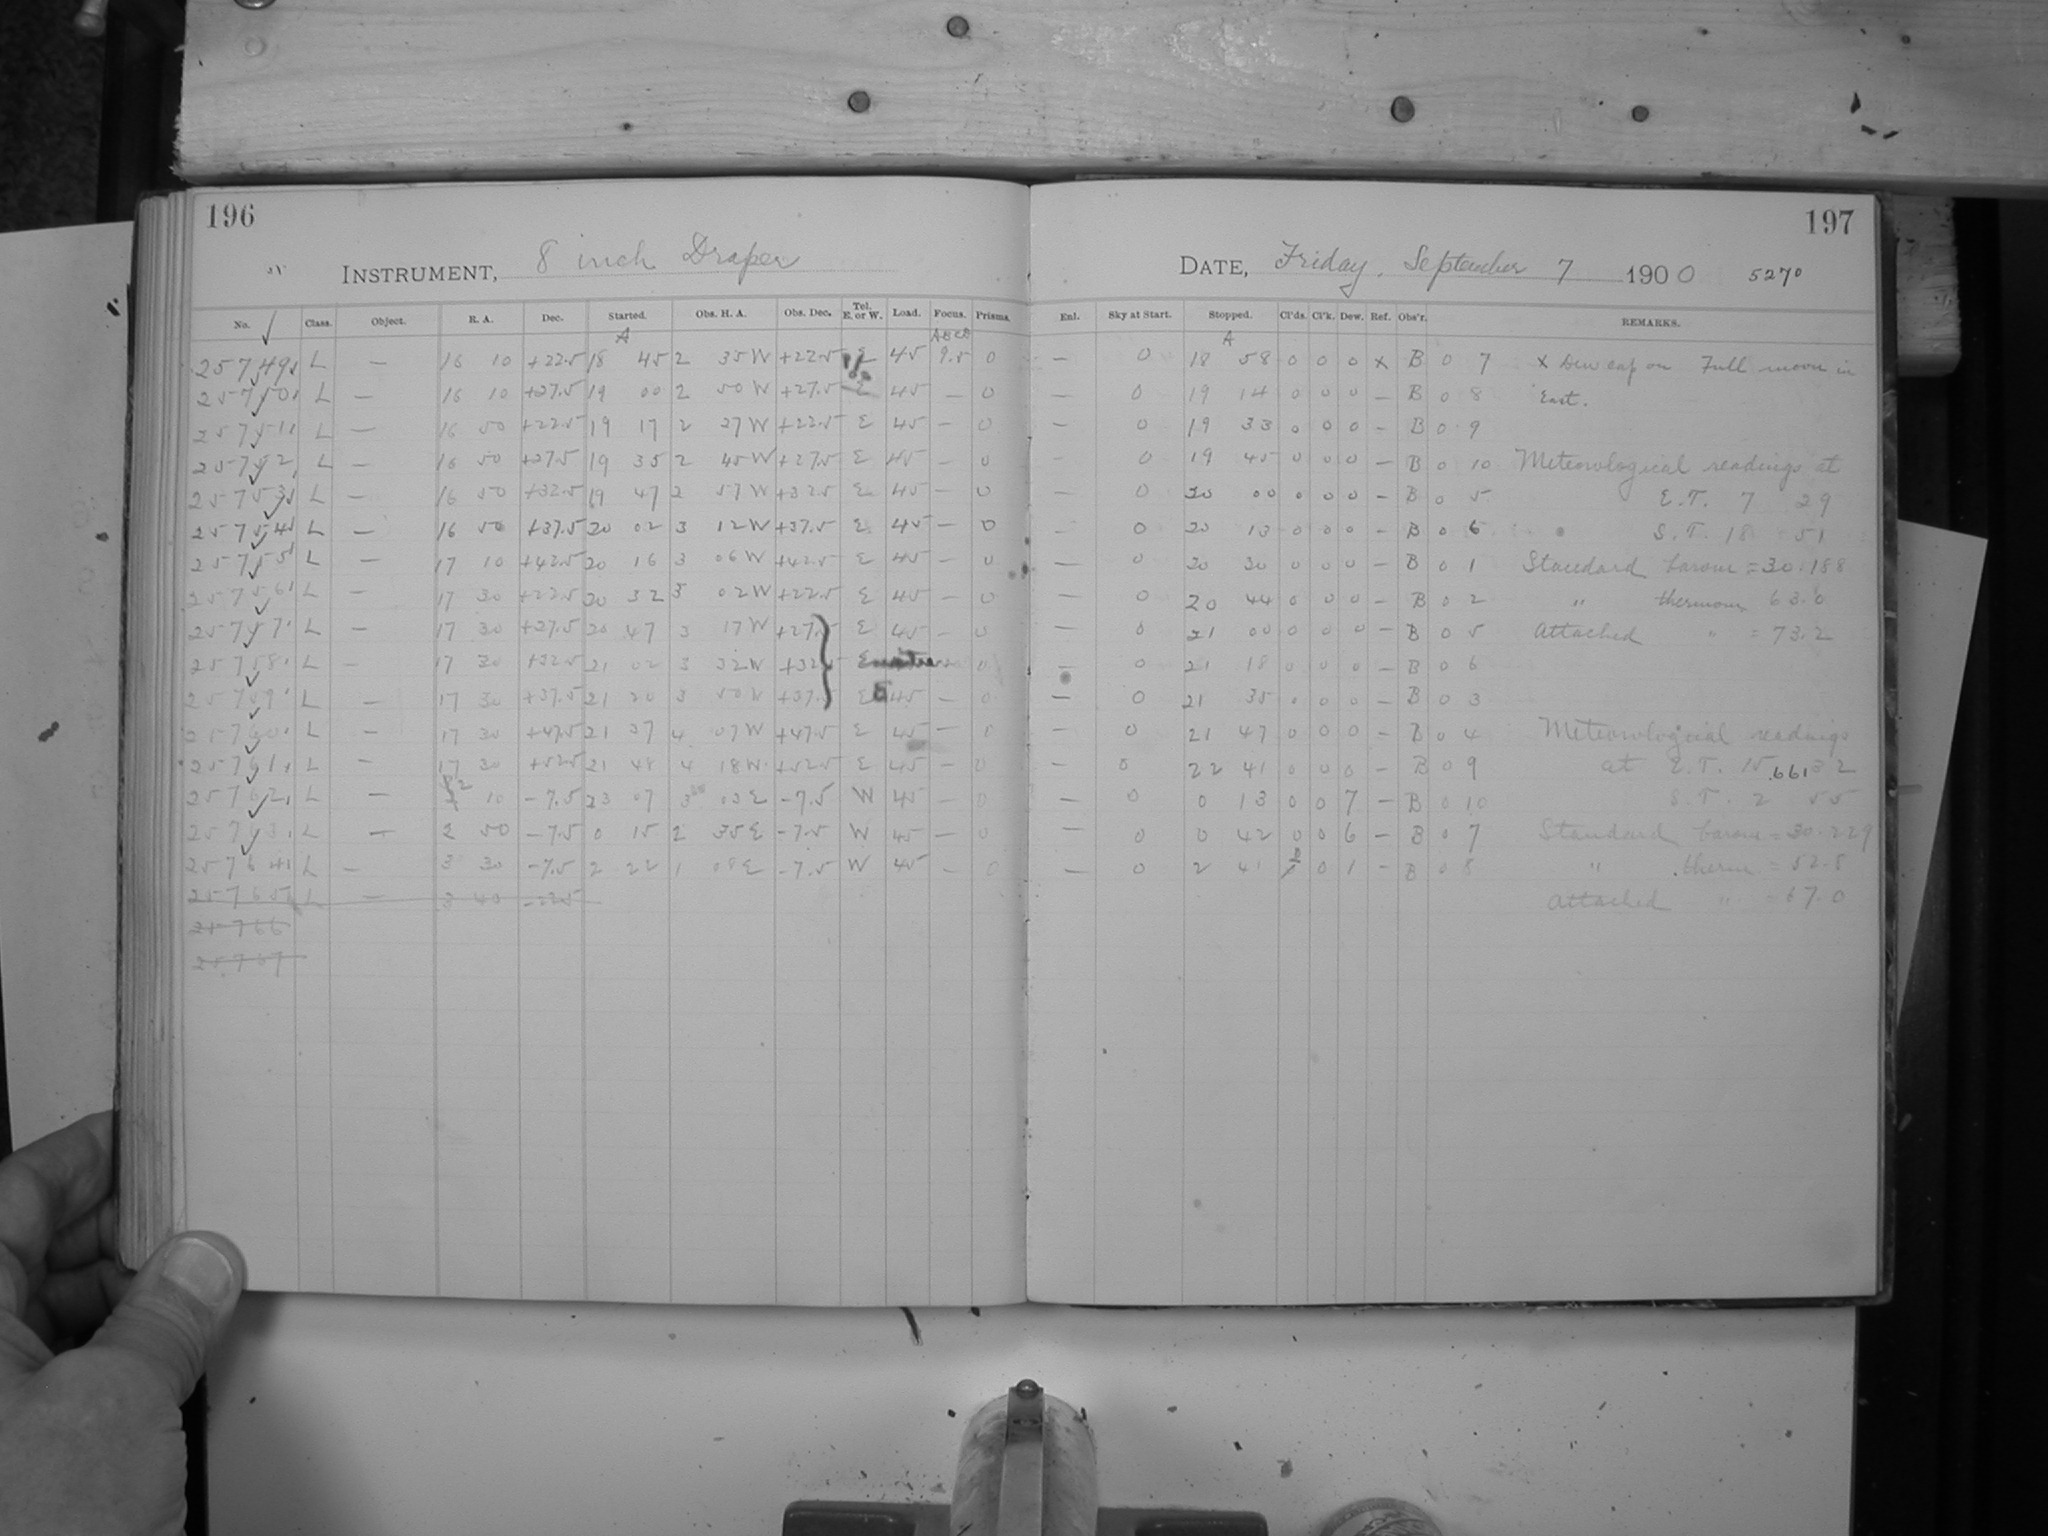 196
INSTRUMENT, 8 inch Draper
No. Class. Object. R. A. Dec. Started. Obs. H. A. Obs. Dec. Tel. E. or W. Load. Focus. Prisms.
A ABCD
25749 L — 16 10 +22.5 18 45 2 35 W +22.5 E 45 9.5 0
25750 L — 16 10 +27.5 19 00 2 50 W +27.5 E 45 — 0
25751 L — 16 50 +22.5 19 17 2 27 W +22.5 E 45 — 0
25752 L — 16 50 +27.5 19 35 2 45 W +27.5 E 45 — 0
25753 L — 16 50 +32.5 19 47 2 57 W +32.5 E 45 — 0
25754 L — 16 50 +37.5 20 02 3 12 W +37.5 E 45 — 0
25755 L — 17 10 +42.5 20 16 3 06 W +42.5 E 45 — 0
25756 L — 17 30 +22.5 20 32 3 02 W +22.5 E 45 — 0
25757 L — 17 30 +27.5 20 47 3 17 W +27.5 E 45 — 0
25758 L — 17 30 +32.5 21 02 3 32 W +32.5 E 0
25759 L — 17 30 +37.5 21 20 3 50 W +37.5 E 45 — 0
25760 L — 17 30 +47.5 21 37 4 07 W +47.5 E 45 — 0
25761 L — 17 30 +52.5 21 48 4 18 W +52.5 E 45 — 0
25762 L — 2 10 -7.5 23 07 3 03 E -7.5 W 45 — 0
25763 L — 2 50 -7.5 0 15 2 35 E -7.5 W 45 — 0
25764 L — 3 30 -7.5 2 22 1 08 E -7.5 W 45 — 0
25765 L — 3 40
25766
25767
197
DATE, Friday, September 7 1900 5270
Enl. Sky at Start. Stopped. Cl'ds. Cl'k. Dew. Ref. Obs'r. REMARKS.
A
— 0 18 58 0 0 0 x B 0 7 x Dew cap on Full moon in
— 0 19 14 0 0 0 — B 0 8 East.
— 0 19 33 0 0 0 — B 0 9
— 0 19 45 0 0 0 — B 0 10 Meteorological readings at
— 0 20 00 0 0 0 — B 0 5 E.T. 7 29
— 0 20 13 0 0 0 — B 0 6 S.T. 18 51
— 0 20 30 0 0 0 — B 0 1 Standard barom = 30.188
— 0 20 44 0 0 0 — B 0 2 " thermom 63.0
— 0 21 00 0 0 0 — B 0 5 Attached " = 73.2
— 0 21 18 0 0 0 — B 0 6
— 0 21 35 0 0 0 — B 0 3
— 0 21 47 0 0 0 — B 0 4 Meteorological readings
— 0 22 41 0 0 0 — B 0 9 at E.T. 15 32
— 0 0 13 0 0 7 — B 0 10 S.T. 2 55
— 0 0 42 0 0 6 — B 0 7 Standard barom = 30.229
— 0 2 41 0 1 — B 0 8 " therm = 52.8
Attached " = 67.0